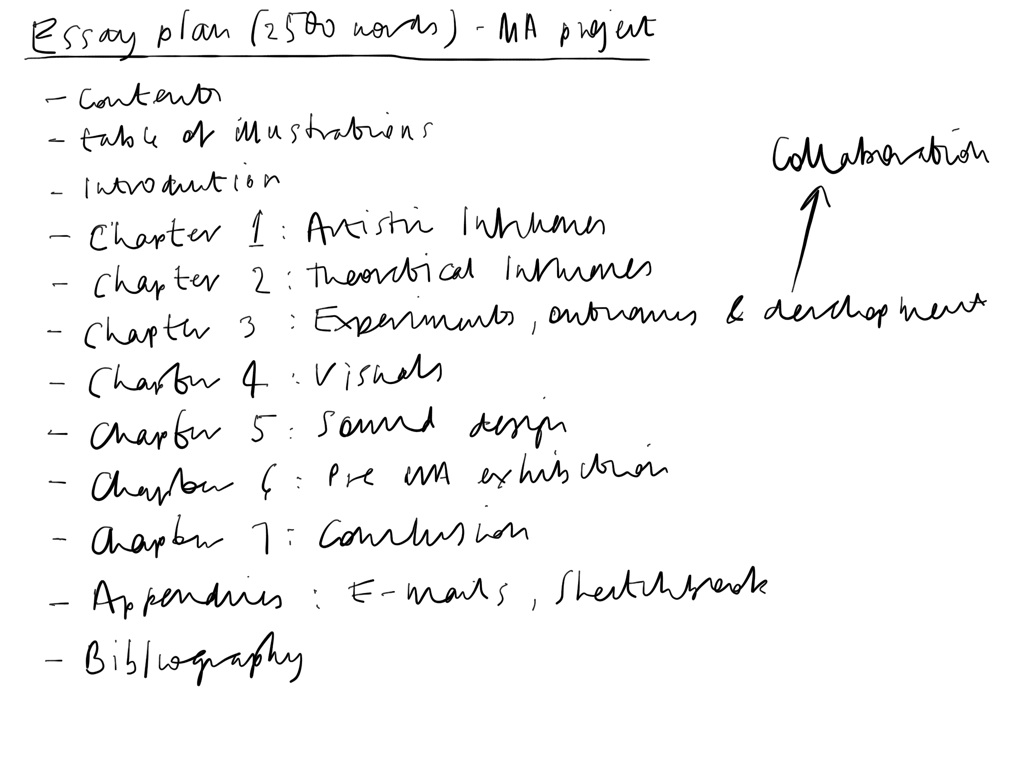 Essay plan (2500 words) - MA project
- Contents
- table of illustrations
- Introduction
- Chapter 1 : Artistic Influences
- Chapter 2 : Theoretical Influences
- Chapter 3 : Experiments, outcomes & development
Collaboration
- Chapter 4 : Visuals
- Chapter 5 : Sound design
- Chapter 6 : Pre MA exhibition
- Chapter 7 : Conclusion
- Appendices : E-mails, Sketchbook
- Bibliography